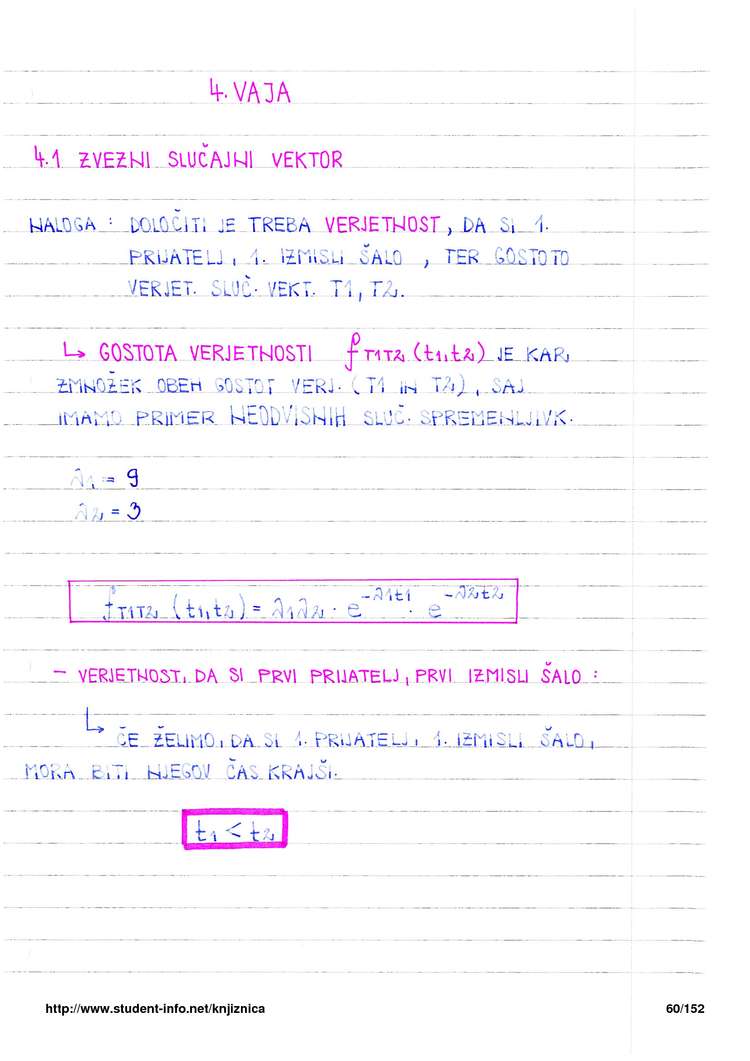 4. VAJA
4.1 ZVEZNI SLUČAJNI VEKTOR
NALOGA : DOLOČITI JE TREBA VERJETNOST, DA SI 1.
PRIJATELJ, 1. IZMISLI ŠALO, TER GOSTOTO
VERJET. SLUČ. VEKT. T1, T2.
↳ GOSTOTA VERJETNOSTI f T1T2 (t1,t2) JE KAR,
ZMNOŽEK OBEH GOSTOT VERJ. (T1 IN T2), SAJ
IMAMO PRIMER NEODVISNIH SLUČ. SPREMENLJIVK.
λ1 = 9
λ2 = 3
f T1T2 (t1,t2) = λ1λ2 · e^-λ1t1 · e^-λ2t2
- VERJETNOST, DA SI PRVI PRIJATELJ, PRVI IZMISLI ŠALO :
↳ ČE ŽELIMO, DA SI 1. PRIJATELJ, 1. IZMISLI ŠALO,
MORA BITI NJEGOV ČAS KRAJŠI.
t1 < t2
http://www.student-info.net/knjiznica 60/152